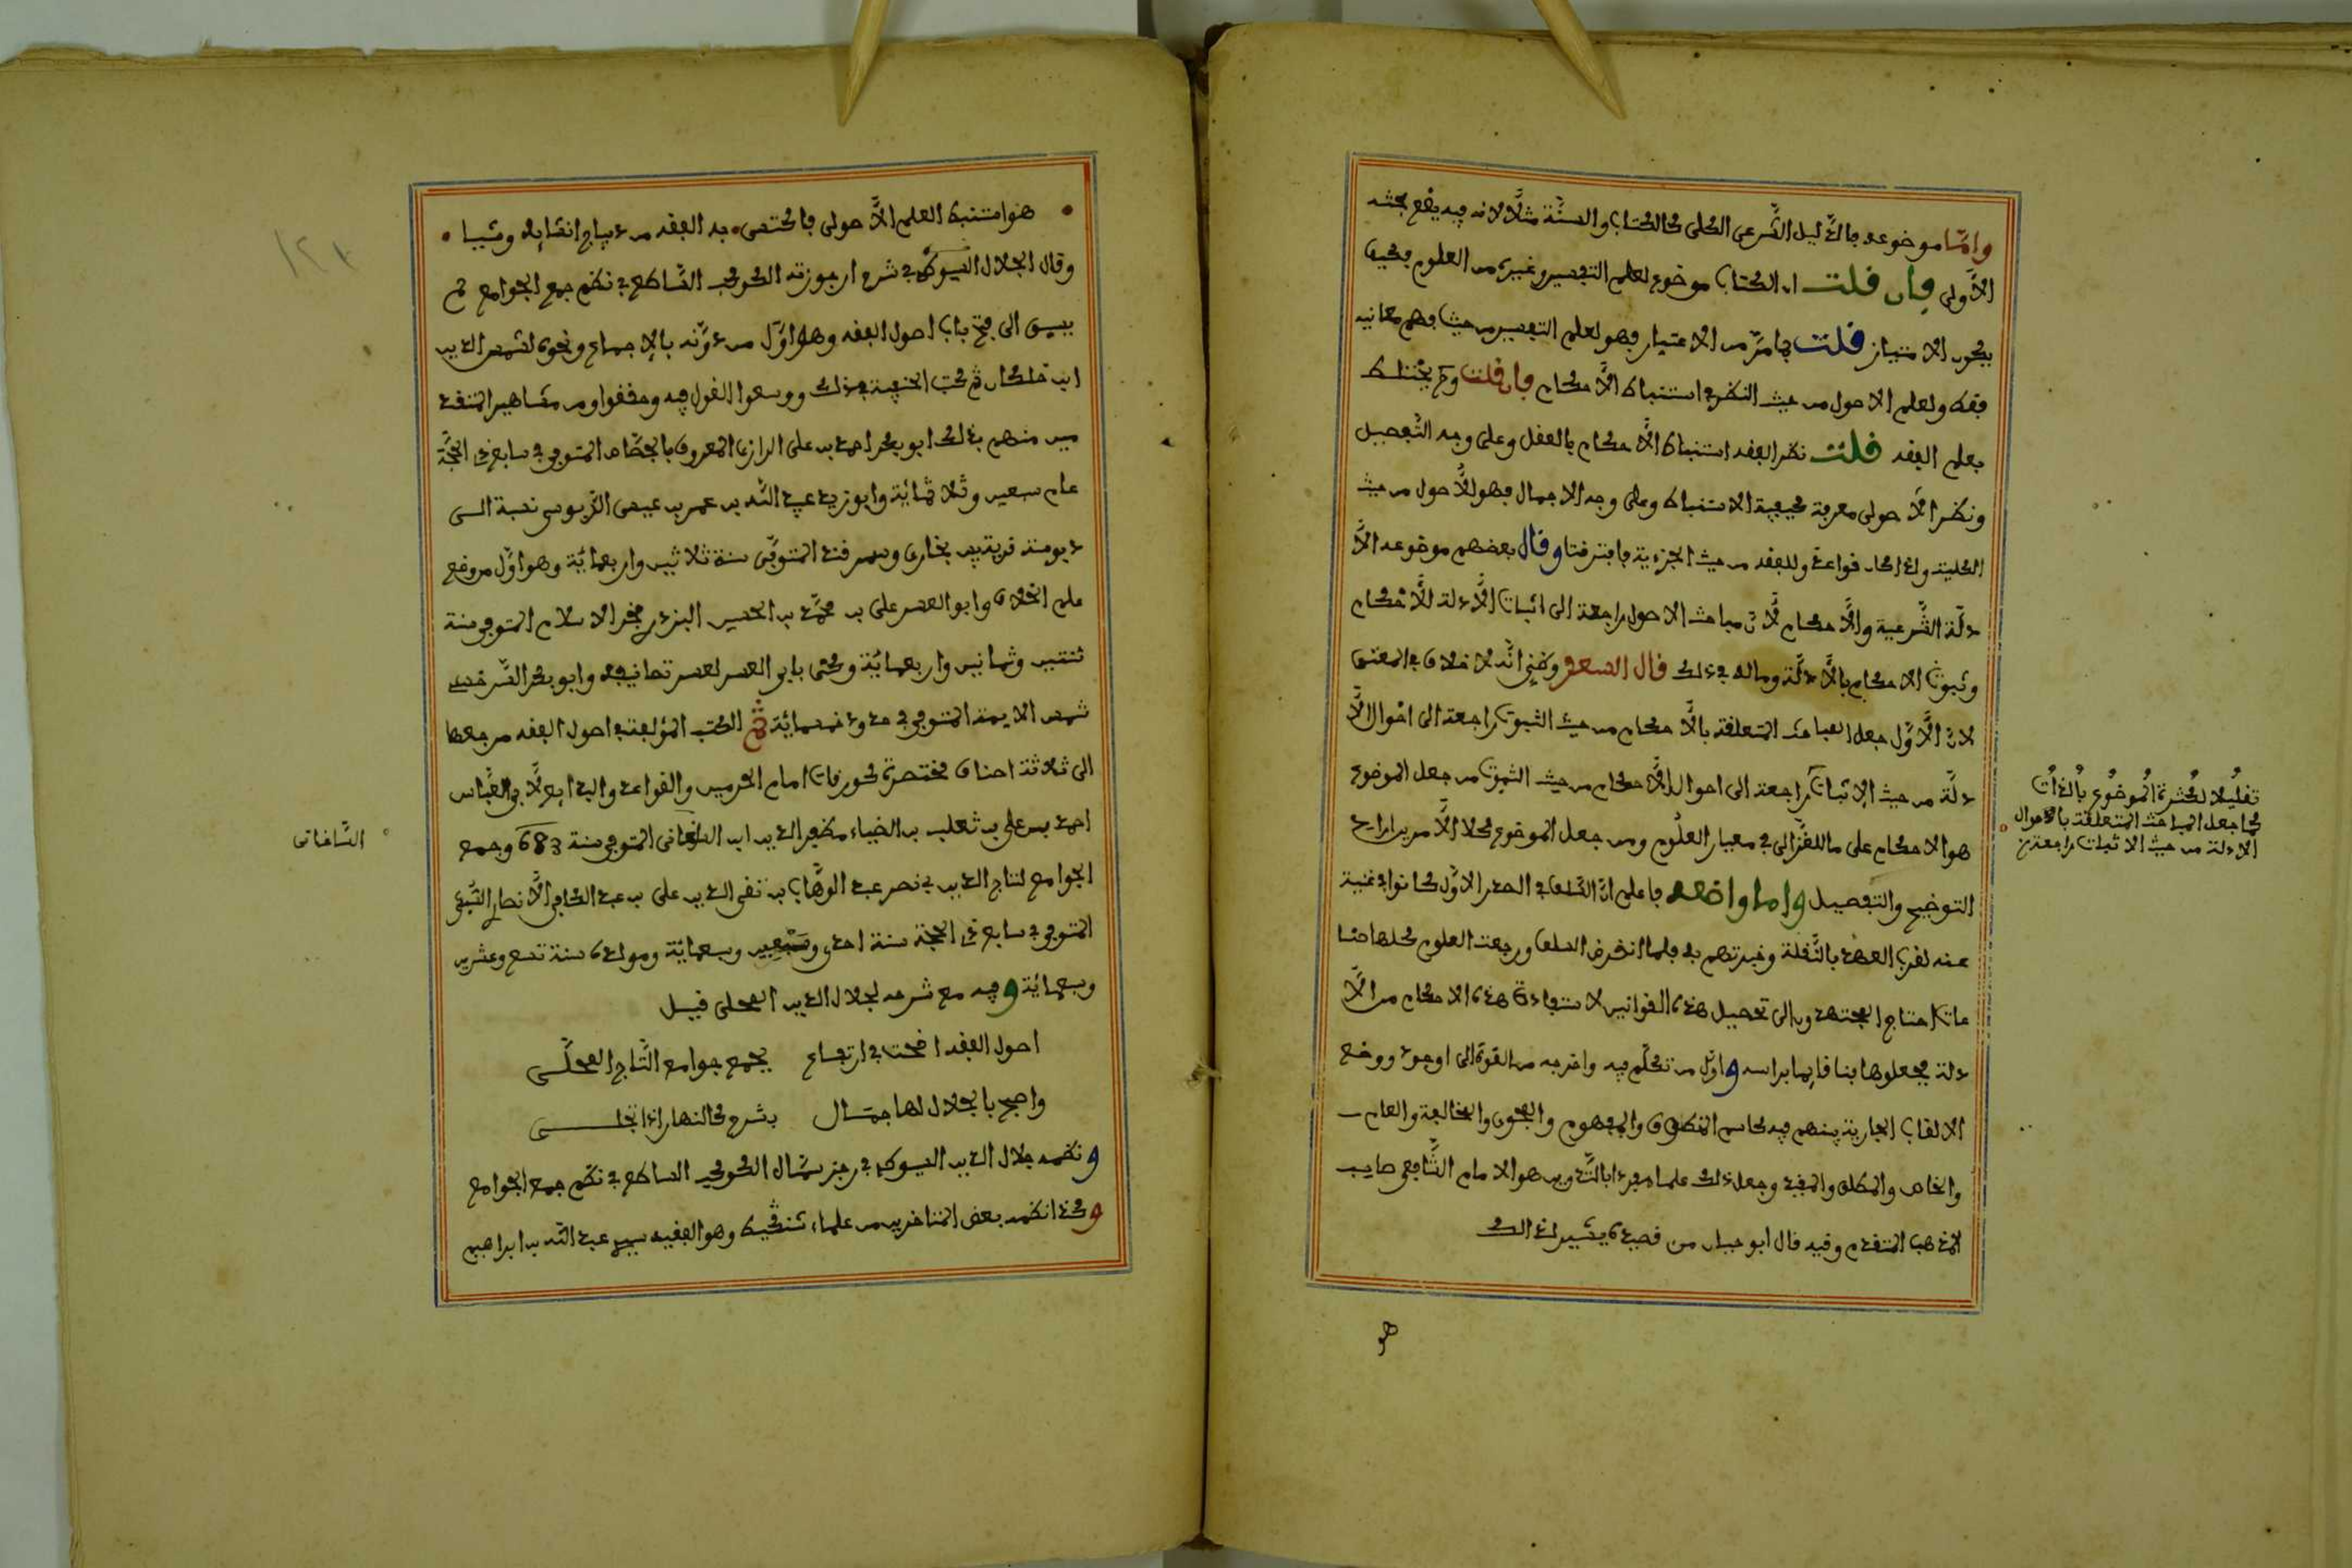 واما موضوعه فالدليل الشرعي الكلي كالكتاب والسنة مثلا لانه فيه يقع بحثه
الاولى فان قلت ان الكتاب موضوع لعلم التفسير وغيره من العلوم فكيف
يكون الامتياز قلت بما مر من الاعتبار فهو لعلم التفسير من حيث فهم معانيه
فقط ولعلم الاصول من حيث النظر في استنباط الاحكام فان قلت ولم يختلط
بعلم الفقه قلت نظر الفقه استنباط الاحكام بالفعل وعلى وجه التفصيل
ونظر الاصولي معرفة كيفية الاستنباط وعلى وجه الاجمال فهو للاصول من حيث
الكلية ولذا كان قواعد وللفقه من حيث الجزءية فافترقتا وقال بعضهم موضوعه الا
دلة الشرعية والاحكام لان مباحث الاصول راجعة الى اثبات الادلة للاحكام
وثبوت الاحكام بالادلة وماله في ذلك قال السعد وظني انه لا خلاف في المعنى
لان الاول جعل المباحث المتعلقة بالاحكام من حيث الثبوت راجعة الى احوال الا
دلة من حيث الاثبات راجعة الى احوال الاحكام من حيث الثبوت من جعل الموضوع
هو الاحكام على ما للغزالي في معيار العلوم ومن جعل الموضوع كلا الامرين اراد
التوضيح والتفصيل واما واضعه فاعلم ان السلف في الصدر الاول كانوا في غنية
عنه لقرب العهد بالنقلة وخبرتهم بل فلما انقرض السلف ورجعت العلوم كلها صنا
عات احتاج المجتهدون الى تحصيل هذه القوانين لاستفادة هذه الاحكام من الا
دلة فجعلوها فنا قايما براسه واول من تكلم فيه واخرجه من القوة الى الوجود ووضع
الالقاب الجارية بينهم فيه كاسم المنطوق والمفهوم والفحوى والمخالفة والعام
والخاص والمطلق والمقيد وجعل ذلك علما مفردا بالتدوين هو الامام الشافعي صاحب
المذهب المتقدم وفيه قال ابو حيان من قصيدة يشير لذالك
هو
تقليلا لكثرة الموضوع بالذات
كما جعل المباحث المتعلقة بالاحوال
الادلة من حيث الاثبات راجعة
هو استنبط العلم الاصولي فاكتسى به الفقه من ديباج انشايه وشيا
وقال الجلال السيوطي في شرح ارجوزته الكوكب الساطع في نظم جمع الجوامع لم
يسبق الى فتح باب اصول الفقه وهو اول من دونه بالاجماع ونحوه لشمس الدين
ابن خلكان ثم كتب الحنفية في ذلك ووسعوا القول فيه وحققوا ومن مشاهير المتقد
مين منهم بذلك ابو بكر احمد بن علي الرازي المعروف بالجصاص المتوفى في سابع ذي الحجة
عام سبعين وثلاثمائة وابو زيد عبد الله بن عمر بن عيسى الدبوسي نسبة الى
دبوسة قرية بين بخارى وسمرقند المتوفى سنة ثلاثين واربعمائة وهو اول من وضع
علم الخلاف وابو العسر علي بن محمد بن الحسين البزدوي فخر الاسلام المتوفى سنة
ثنتين وثمانين واربعمائة وكنى بابي العسر لعسر تصانيفه وابو بكر السرخسي
شمس الايمة المتوفى في حدود خمسمائة ثم الكتب المؤلفة في اصول الفقه مرجعها
الى ثلاثة اصناف مختصرة كورقات امام الحرمين والقواعد والبدايع لابي العباس
احمد بن علي بن ثعلب بن الضياء مظفر الدين ابن الساعاتي المتوفى سنة 683 وجمع
الجوامع لتاج الدين ابي نصر عبد الوهاب بن تقي الدين علي بن عبد الكافي الانصاري السبكي
المتوفى في سابع ذي الحجة سنة احدى وسبعين وسبعمائة ومولده سنة تسع وعشرين
وسبعمائة وفيه مع شرحه لجلال الدين المحلي قيل
اصول الفقه اضحت في ارتفاع بجمع جوامع التاج المحلى
واصبح بالجلال لها جمال بشرح كالنهار اذا تجلى
ونظمه جلال الدين السيوطي في رجز سماه الكوكب الساطع في نظم جمع الجوامع
وكذا نظمه بعض المتاخرين من علماء شنقيط وهو الفقيه سيدي عبد الله بن ابراهيم
الساعاتي
١٢١